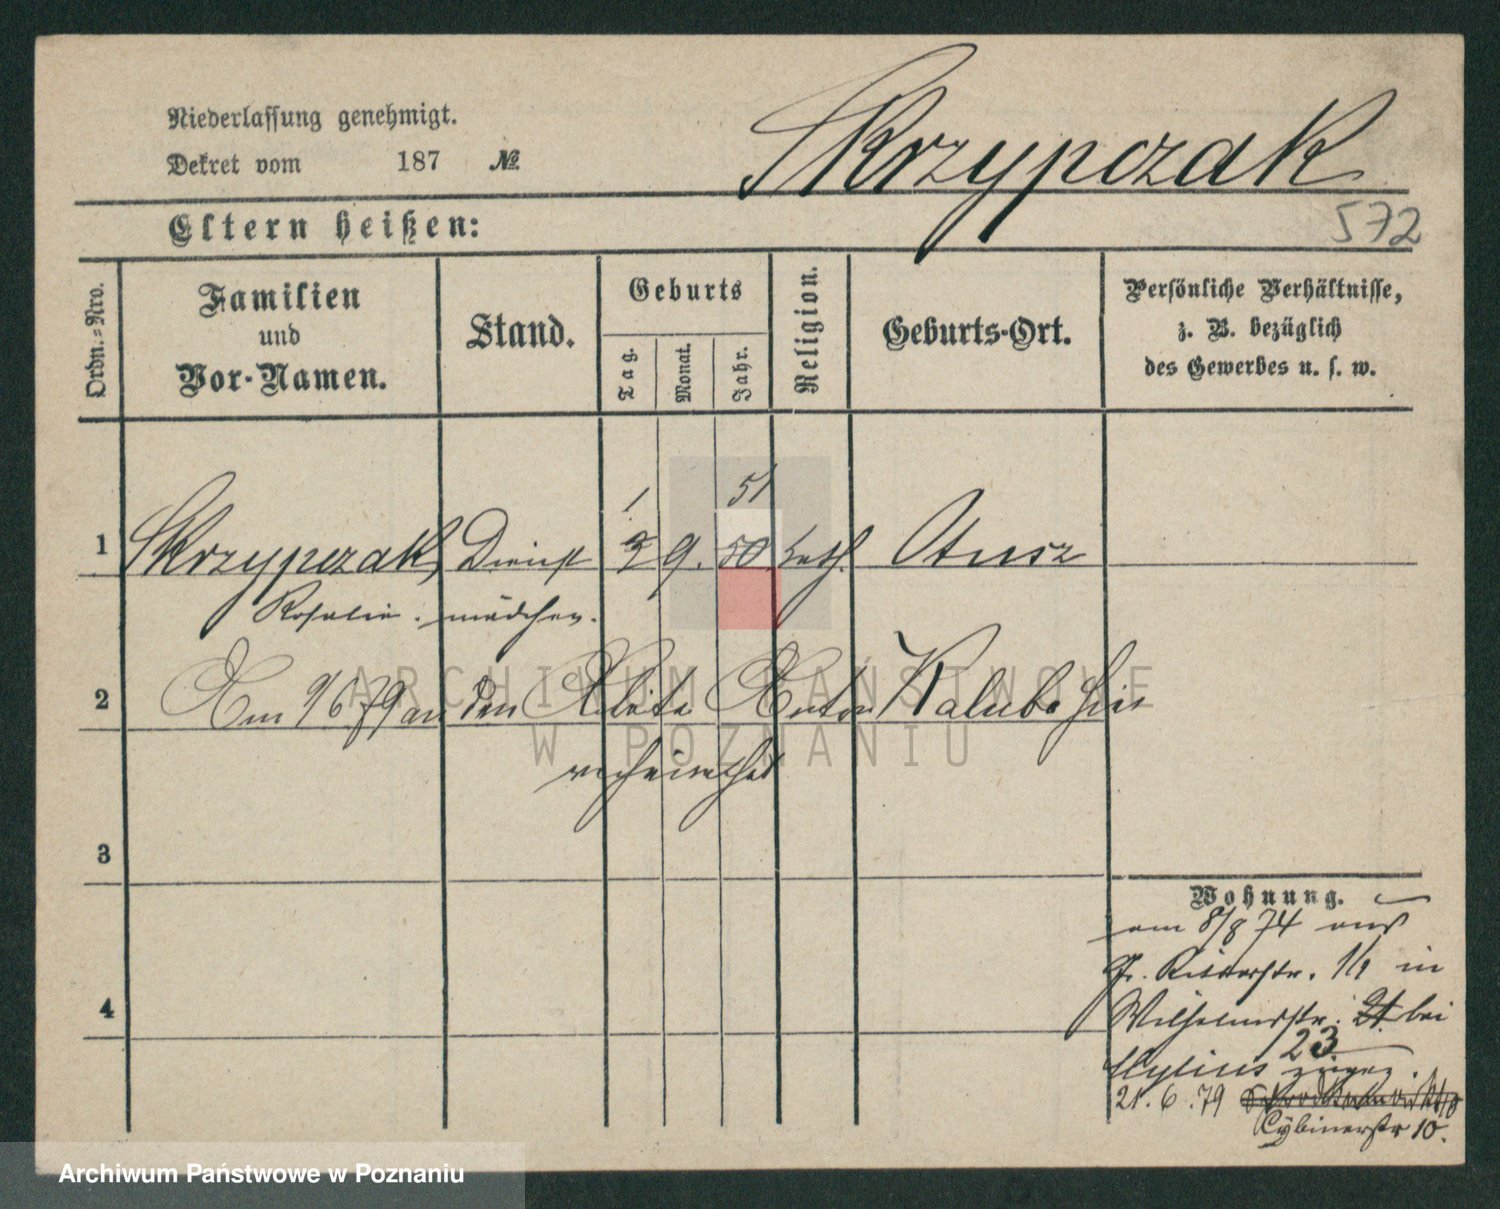 Niederlassung genehmigt.
Dekret vom 187 №
Skrzypczak
572
Eltern heißen:
Ordn.-Nro.
Familien und Vor-Namen.
Stand.
Geburts
Tag.
Monat.
Jahr.
Religion.
Geburts-Ort.
Persönliche Verhältnisse,
z. B. bezüglich
des Gewerbes u. s. w.
1 51
1 Skrzypczak, Dienst 9. 50 kath. Otusz
Rosalie. mädchen.
2 Am 9/6 79 an den Anton Kaluba hier
verheirathet
3
Wohnung.
am 8/8 74 aus
Gr. Ritterstr. in
4
Wilhelmstr. 21. bei
23.
Mylius zugez.
21.6.79
Cybinerstr 10.
ARCHIWUM PAŃSTWOWE
W POZNANIU
Archiwum Państwowe w Poznaniu